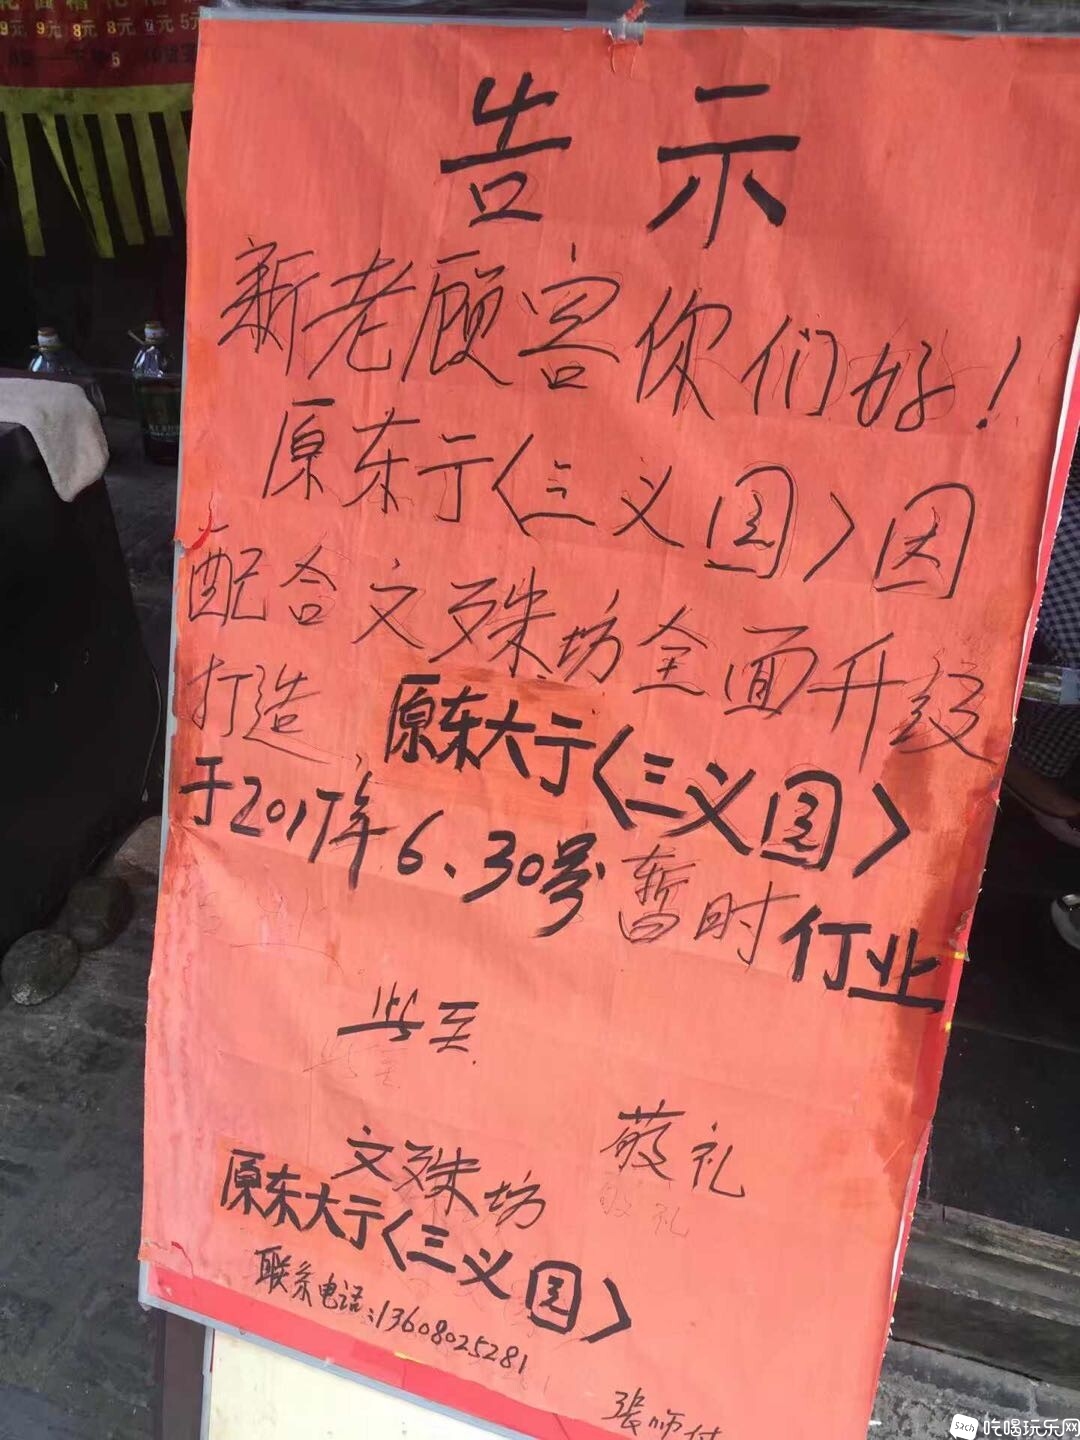 9元 9元 8元 8元 7元 5元
告示
新老顾客你们好！
原东亍〈三义园〉因
配合文殊坊全面升级
打造,原东大亍〈三义园〉
于2017年6、30号暂时停业
此至
敬礼
文殊坊
原东大亍〈三义园〉
联系电话：13608025281
张师付
吃喝玩乐